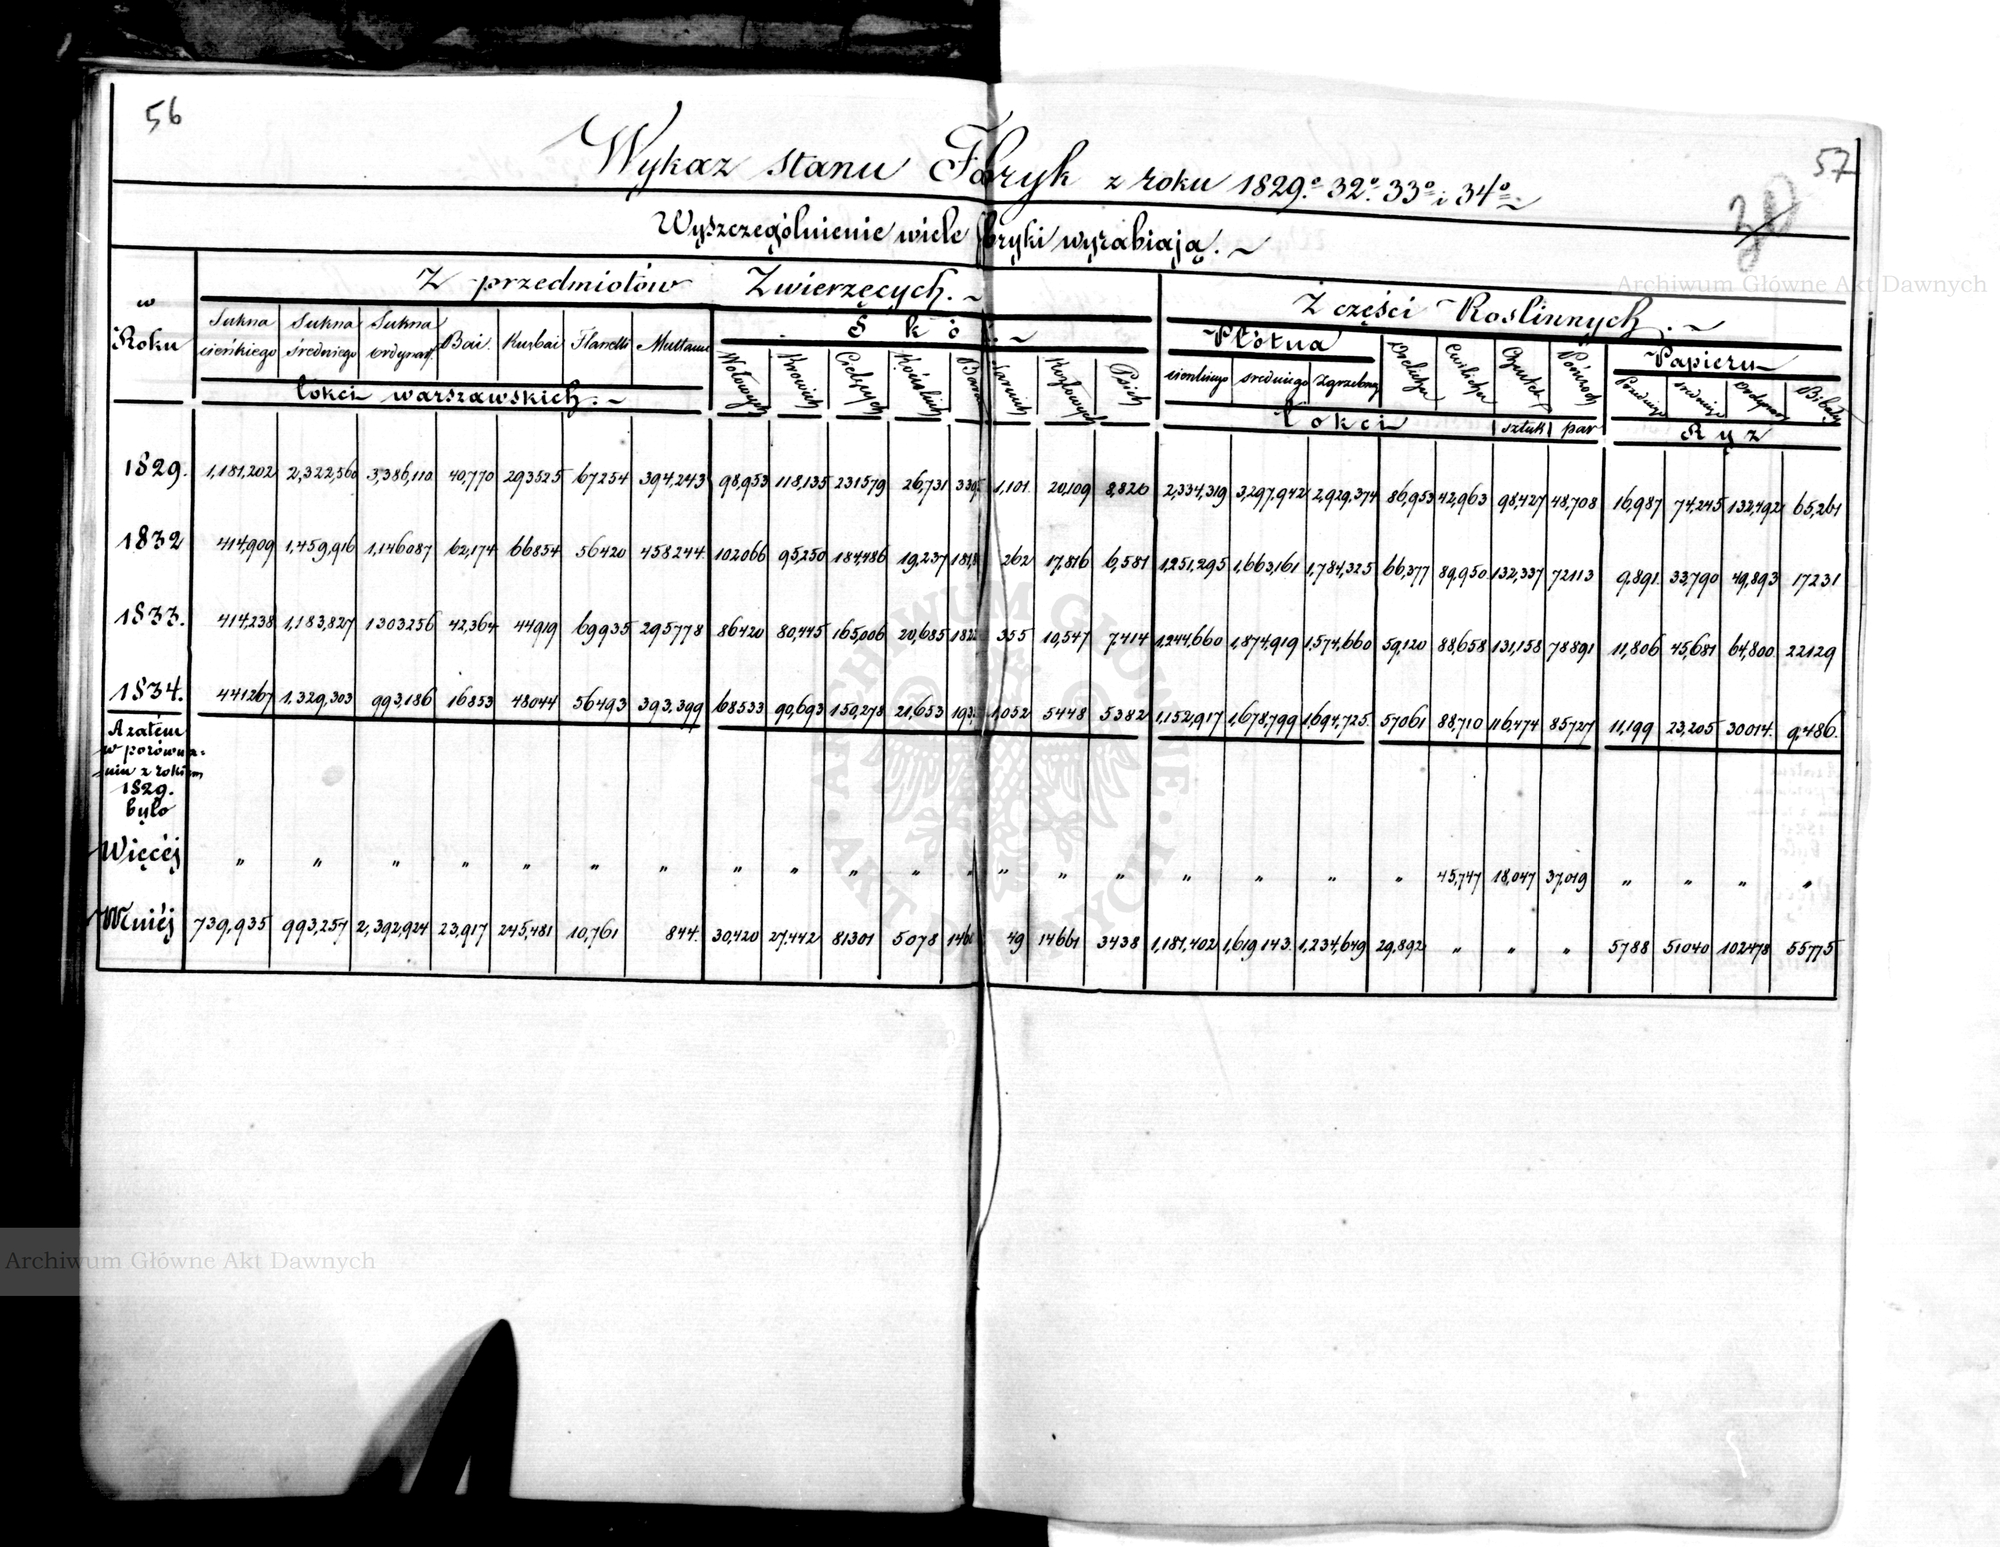 56
57
Wykaz stanu Fabryk z roku 1829.º 32º 33º i 34º
Wyszczególnienie wiele fabryki wyrabiają.
w Roku
Z przedmiotów Zwierzęcych.
Z części Roślinnych.
Sukna cieńkiego Sukna średniego Sukna ordynar. Bai. Kurbai Flanelli Multanu
Łokci warszawskich.
Skór
Wołowych Krowich Cielęcych Końskich Baranich Kozłowych Psich
Płótna
cienkiego średniego Zgrzebnego
Drelichu Cwilichu Pończoch
Łokci sztuk par
Papieru
średniego ordynar. Bibuły
Ryz
1829. 1,181,202 2,322,560 3,386,110 40,770 293525 67254 394,243 98,953 118,135 231579 26,731 1,101 20,109 8,820 2,334,319 3,297,942 2,929,374 86,953 42,963 98,427 48,708 16,987 74,245 132,492 65,261
1832 414,909 1,459,916 1,146087 62,174 66854 56420 458244 102066 95,250 184,486 19,237 262 17,816 6,581 1,251,295 1,663,161 1,784,325 66,377 89,950 132,337 72113 9,891. 33,790 49,893 17231
1833. 414,238 1,183,827 1303256 42,364 44919 69935 295778 86420 80,445 165,006 20,685 355 10,547 7,414 1,244,660 1,874,919 1,574,660 59,120 88,658 131,158 78891 11,806 45,681 64,800 22129
1834. 441267 1,329,303 993,186 16853 48044 56493 393,399 68533 90,693 150,278 21,653 1,052 5448 5382 1,152,917 1,678,799 1,694,725. 57061 88,710 116,474 85727 11,199 23,205 30014. 9,486.
A zatem
w porówna-
niu z rokiem
1829.
było
Więcéj „ „ „ „ „ „ „ „ „ „ „ „ „ „ „ „ „ „ „ 45,747 18,047 37,019 „ „ „ „
Mniéj 739,935 993,257 2,392,924 23,917 245,481 10,761 844. 30,420 27,442 81301 5078 49 14661 3438 1,181,402 1,619,143. 1,234,649 29,892 „ „ „ 5788 51040 102478 55775
Archiwum Główne Akt Dawnych
Archiwum Główne Akt Dawnych
ARCHIWUM GŁÓWNE · AKT DAWNYCH ·